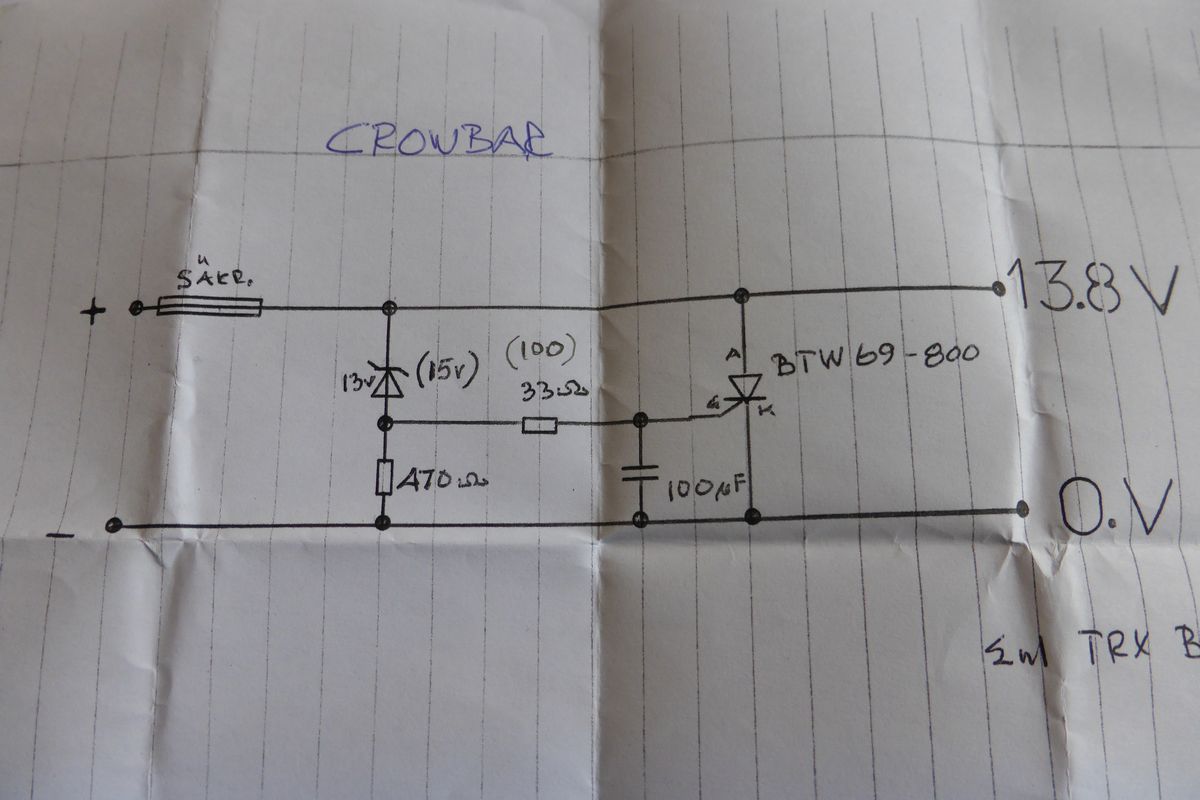 CROWBAR
SÄKR.
+
13.8 V
(100)
13V (15V)
33Ω
A
BTW 69-800
G
K
470Ω
100µF
-
0.V
TRX B